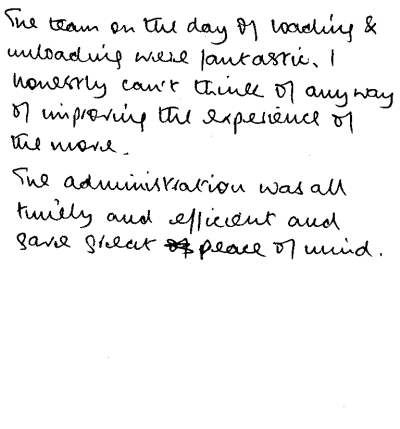 The team on the day of loading &
unloading were fantastic. I
honestly can't think of any way
of improving the experience of
the move.
The administration was all
timely and efficient and
gave great peace of mind.